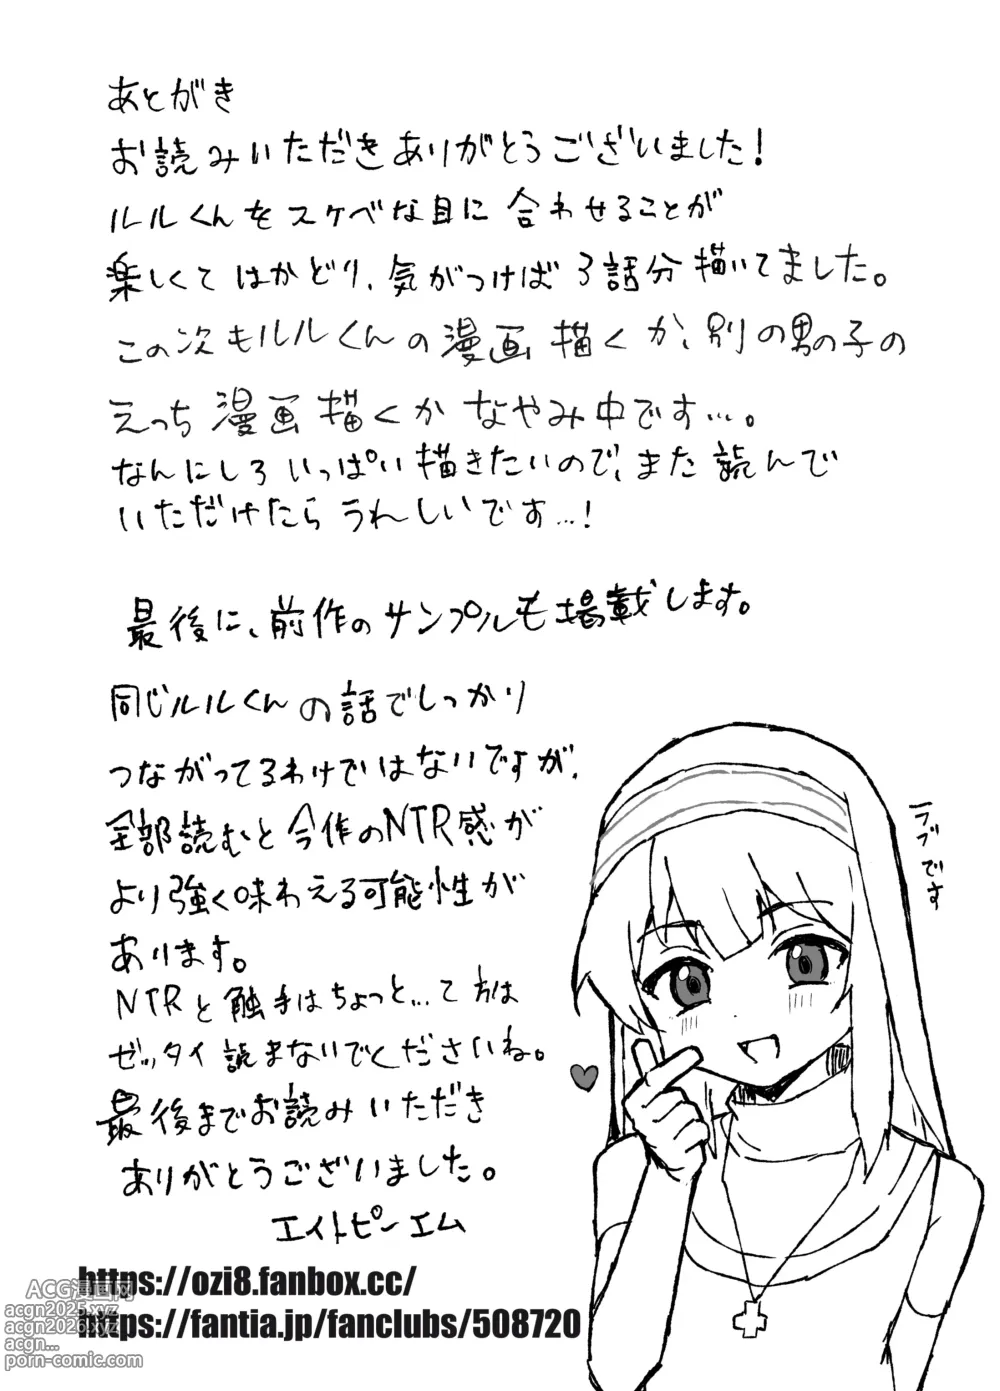 あとがき
お読みいただきありがとうございました!
ルルくんをスケベな目に合わせることが
楽しくてはかどり、気がつけば3話分描いてました。
この次もルルくんの漫画描くか、別の男の子の
えっち漫画描くかなやみ中です…。
なんにしろいっぱい描きたいので、また読んで
いただけたらうれしいです…!
最後に、前作のサンプルも掲載します。
同じルルくんの話でしっかり
つながってるわけではないですが、
全部読むと今作のNTR感が
より強く味わえる可能性が
あります。
NTRと触手はちょっと…て方は
ゼッタイ読まないでくださいね。
最後までお読みいただき
ありがとうございました。
エイトピーエム
ラブです
https://ozi8.fanbox.cc/
https://fantia.jp/fanclubs/508720
ACG漫画网
acgn2025.xyz
acgn2026.xyz
acgn...
porn-comic.com